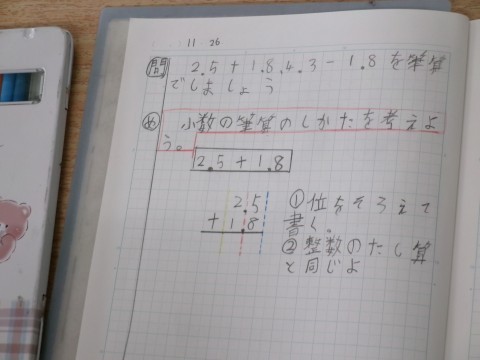 11 26
問 2.5+1.8、4.3-1.8を筆算
でしましょう
め 小数の筆算のしかたを考えよ
う。
2.5+1.8
2.5
+1.8
①位をそろえて
書く。
②整数のたし算
と同じよ